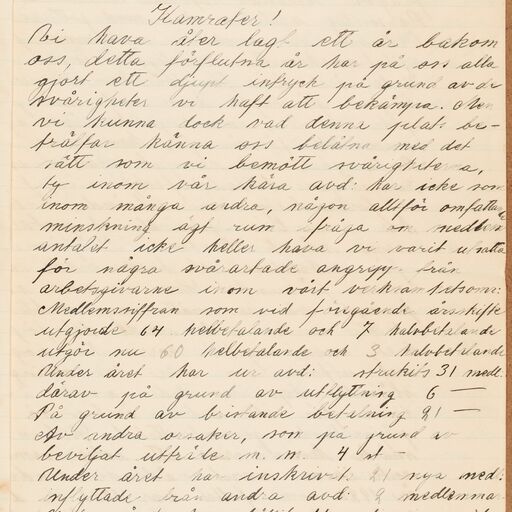 Kamrater!
Vi hava åter lagt ett år bakom
oss, detta förflutna år har på oss alla
gjort ett djupt intryck på grund av de
svårigheter vi haft att bekämpa. Men
vi kunna dock vad denna plats be-
träffar känna oss belåtna med det
sätt som vi bemött svårigheterna,
ty inom vår kära avd: har icke som
inom många andra, någon alltför omfattande
minskning ägt rum i fråga om medlem
antalet icke heller hava vi varit utsatta
för några svårartade angrepp från
arbetsgivarne inom vårt verksamhetsomr:
Medlemssiffran som vid föregående årsskifte
utgjorde 64 helbetalande och 7 halvbetalande
utgör nu 60 helbetalande och 3 halvbetalande
Under året har ur avd: strukits 31 medl.
därav på grund av utflyttning 6 —
På grund av bristande betalning 21 —
Av andra orsaker, som på grund av
beviljat utträde m. m. 4 st —
Under året har inskrivits 21 nya med:
inflyttade från andra avd: 9 medlemma